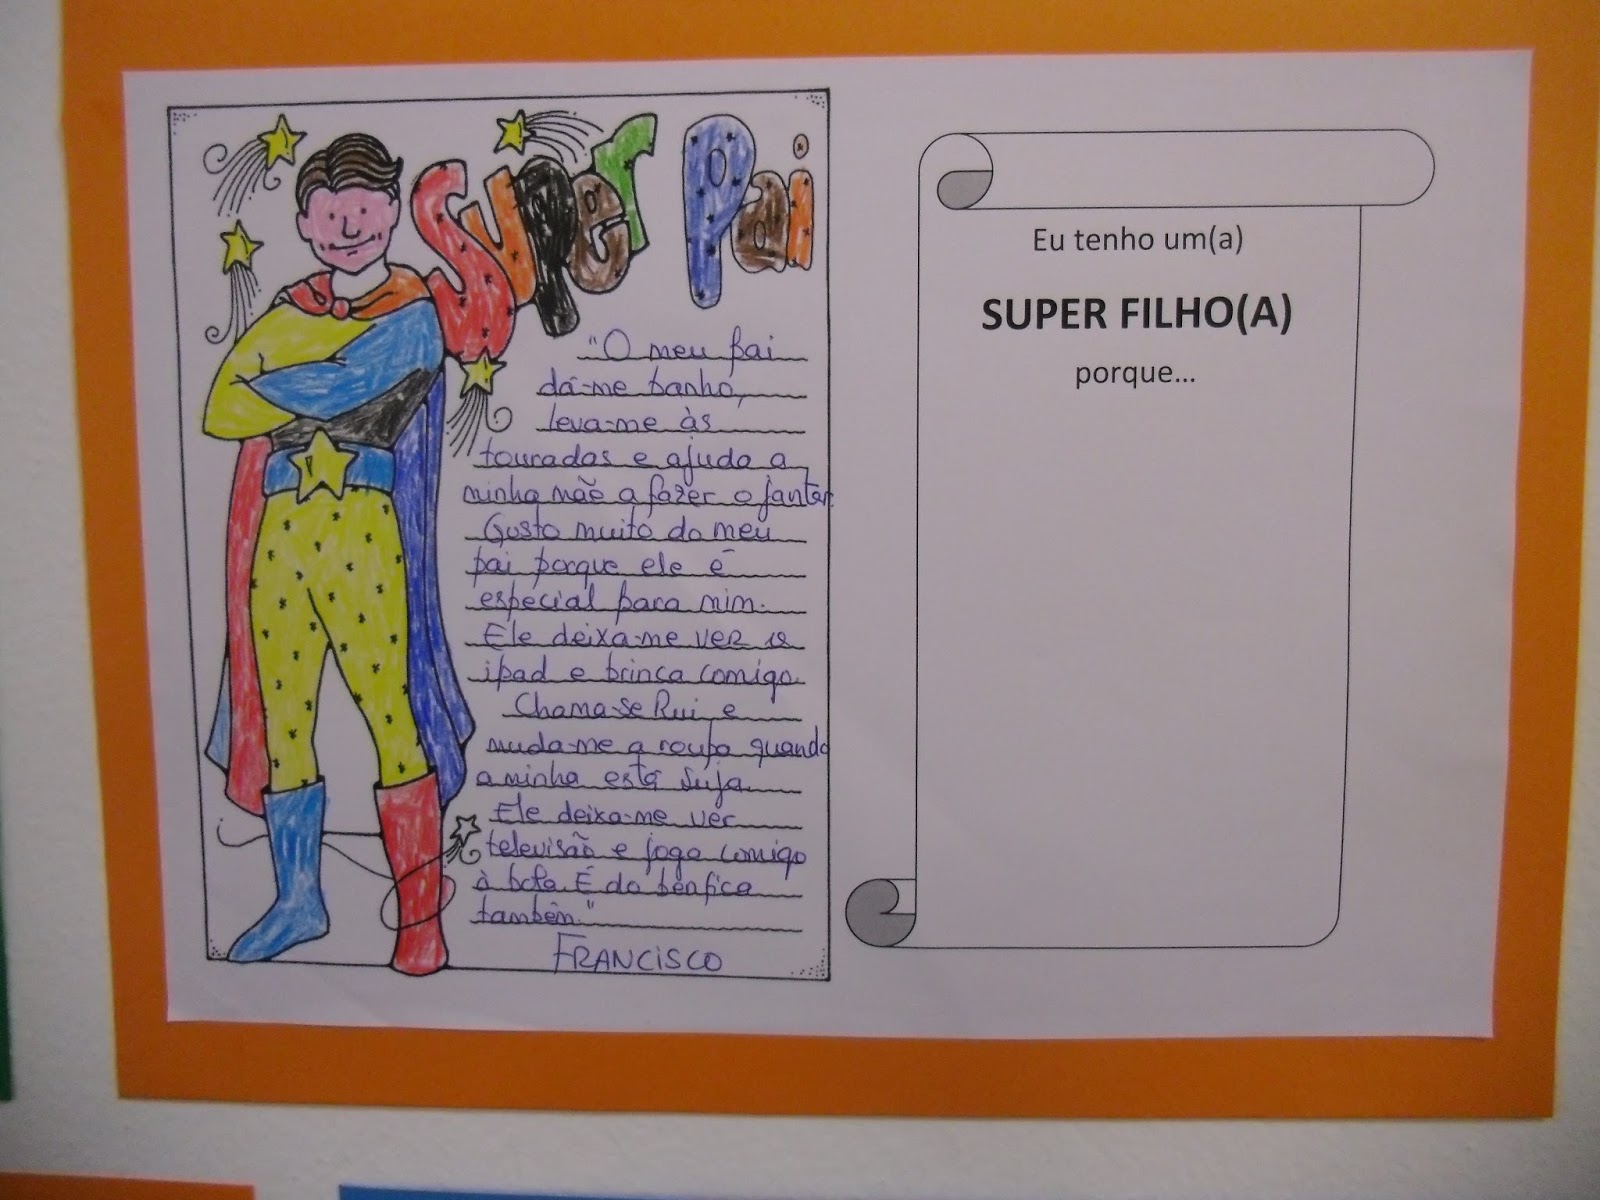 Super Pai
"O meu pai
dá-me banho,
leva-me às
touradas e ajuda a
minha mãe a fazer o jantar.
Gosto muito do meu
pai porque ele é
especial para mim.
Ele deixa-me ver o
ipad e brinca comigo.
Chama-se Rui e
muda-me a roupa quando
a minha está suja.
Ele deixa-me ver
televisão e joga comigo
à bola. É do benfica
também."
FRANCISCO
Eu tenho um(a)
SUPER FILHO(A)
porque...